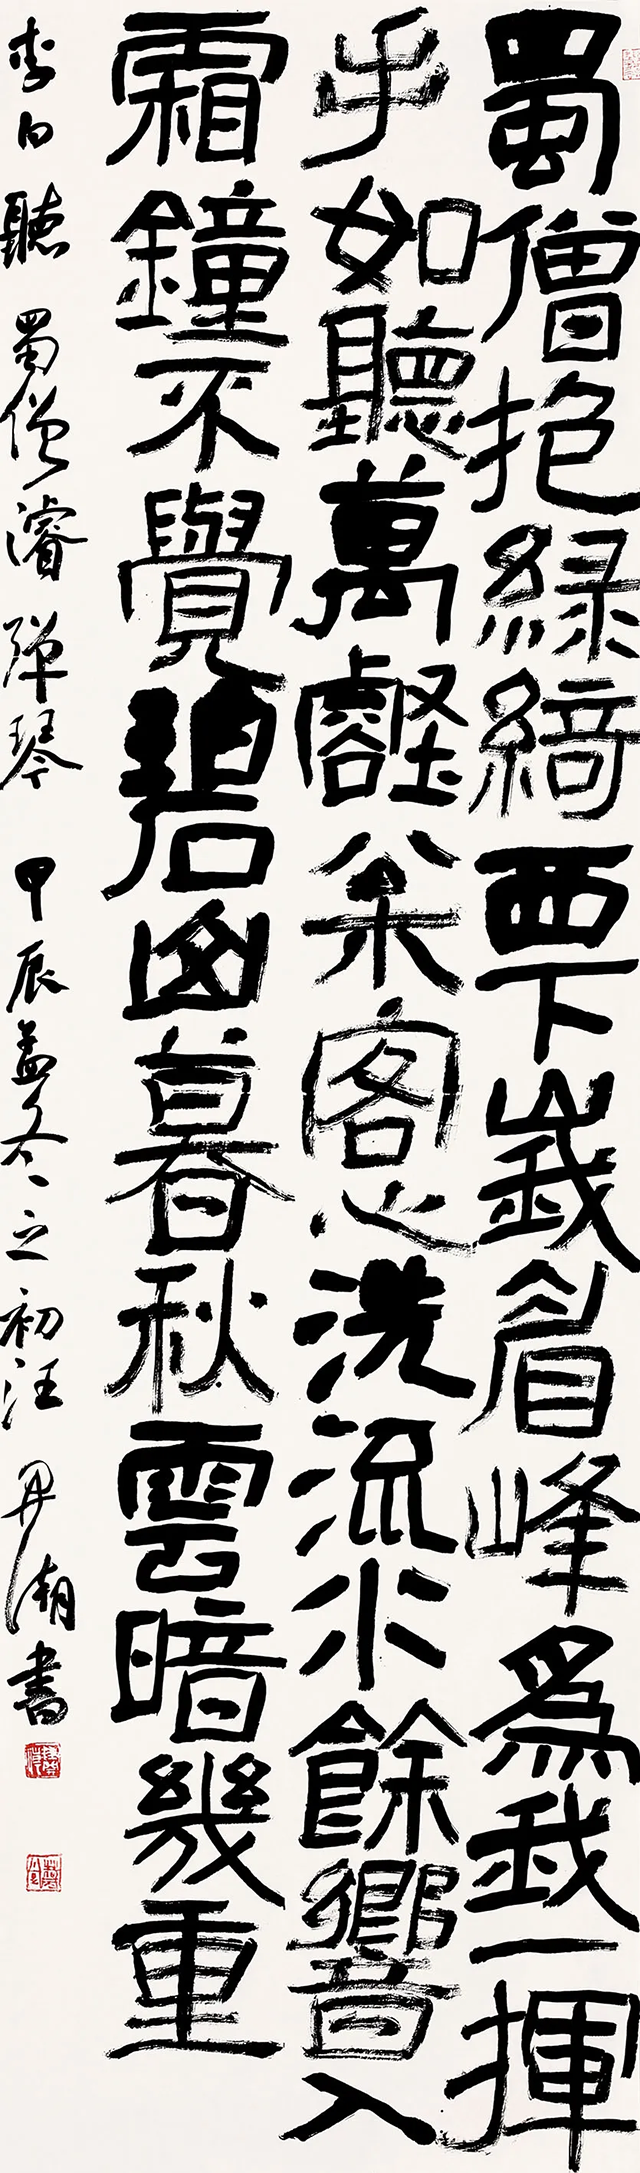 蜀僧抱緑綺西下峩眉峰爲我一揮
手如聽萬壑枩客心洗流水餘響入
霜鐘不覺碧山暮秋雲暗幾重
李白聽蜀僧濬彈琴 甲辰孟冬之初汪潮書